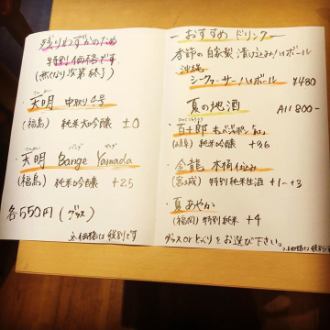 残りわずかのため
特別価格です
(無くなり次第終了)
・天明 中取り4号
(福島) 純米大吟醸 ±0
・天明 Bange Yamada
(福島) 純米吟醸 +2.5
各550円 (グラス)
※価格は税別です
－おすすめ ドリンク－
季節の自家製 漬け込みハイボール
沖縄
シークァーサーハイボール ¥480
夏の地酒 All 800-
・百十郎
(岐阜) 純米吟醸 +9.6
・金龍 木桶仕込み
(宮城) 特別純米生酒 +1~+3
・夏あやか
(福岡) 特別純米 +4
グラス or とっくり をお選び下さい。
※価格は税別